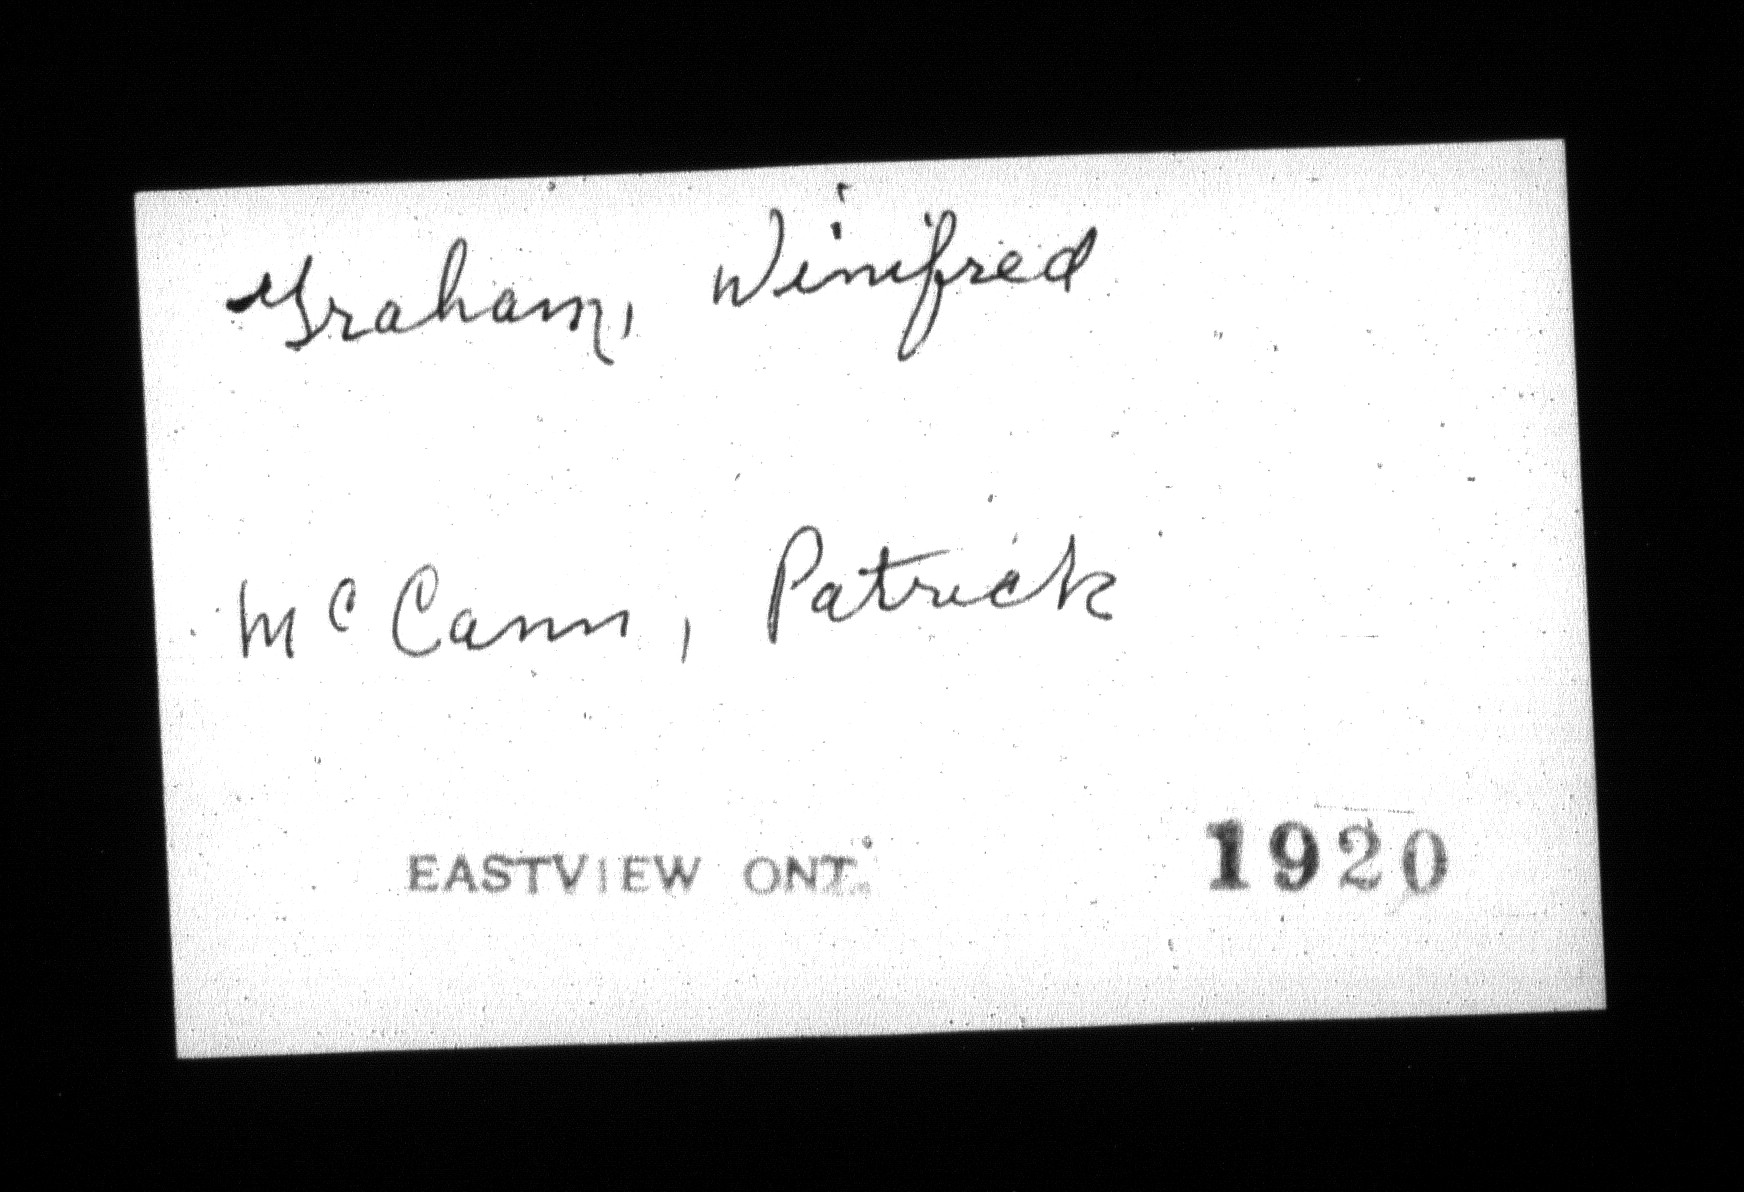 Graham, Winifred
McCann, Patrick
EASTVIEW ONT. 1920